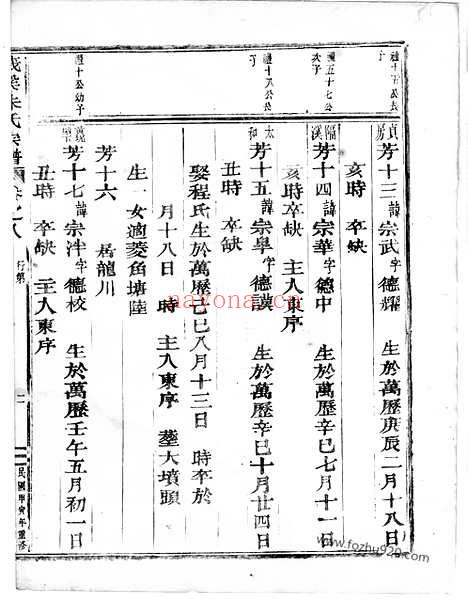 芳十三諱宗武字德耀　生於萬歷庚辰二月十八日
亥時　卒缺
芳十四諱宗華字德中　生於萬歷辛巳七月十一日
亥時卒缺　主入東序
芳十五諱宗皐字德謨　生於萬歷辛巳十月廿四日
丑時　卒缺
娶程氏生於萬歷己巳八月十三日　時卒於
月十八日　時　主入東序　塟大墳頭
生一女適菱角塘陸
芳十六　居龍川
芳十七諱宗泮字德校　生於萬歷壬午五月初一日
丑時　卒缺　主入東序
朱氏宗譜　卷之八　行第　二　民國甲寅年重修
nayona.cn
www.fozhu920.com